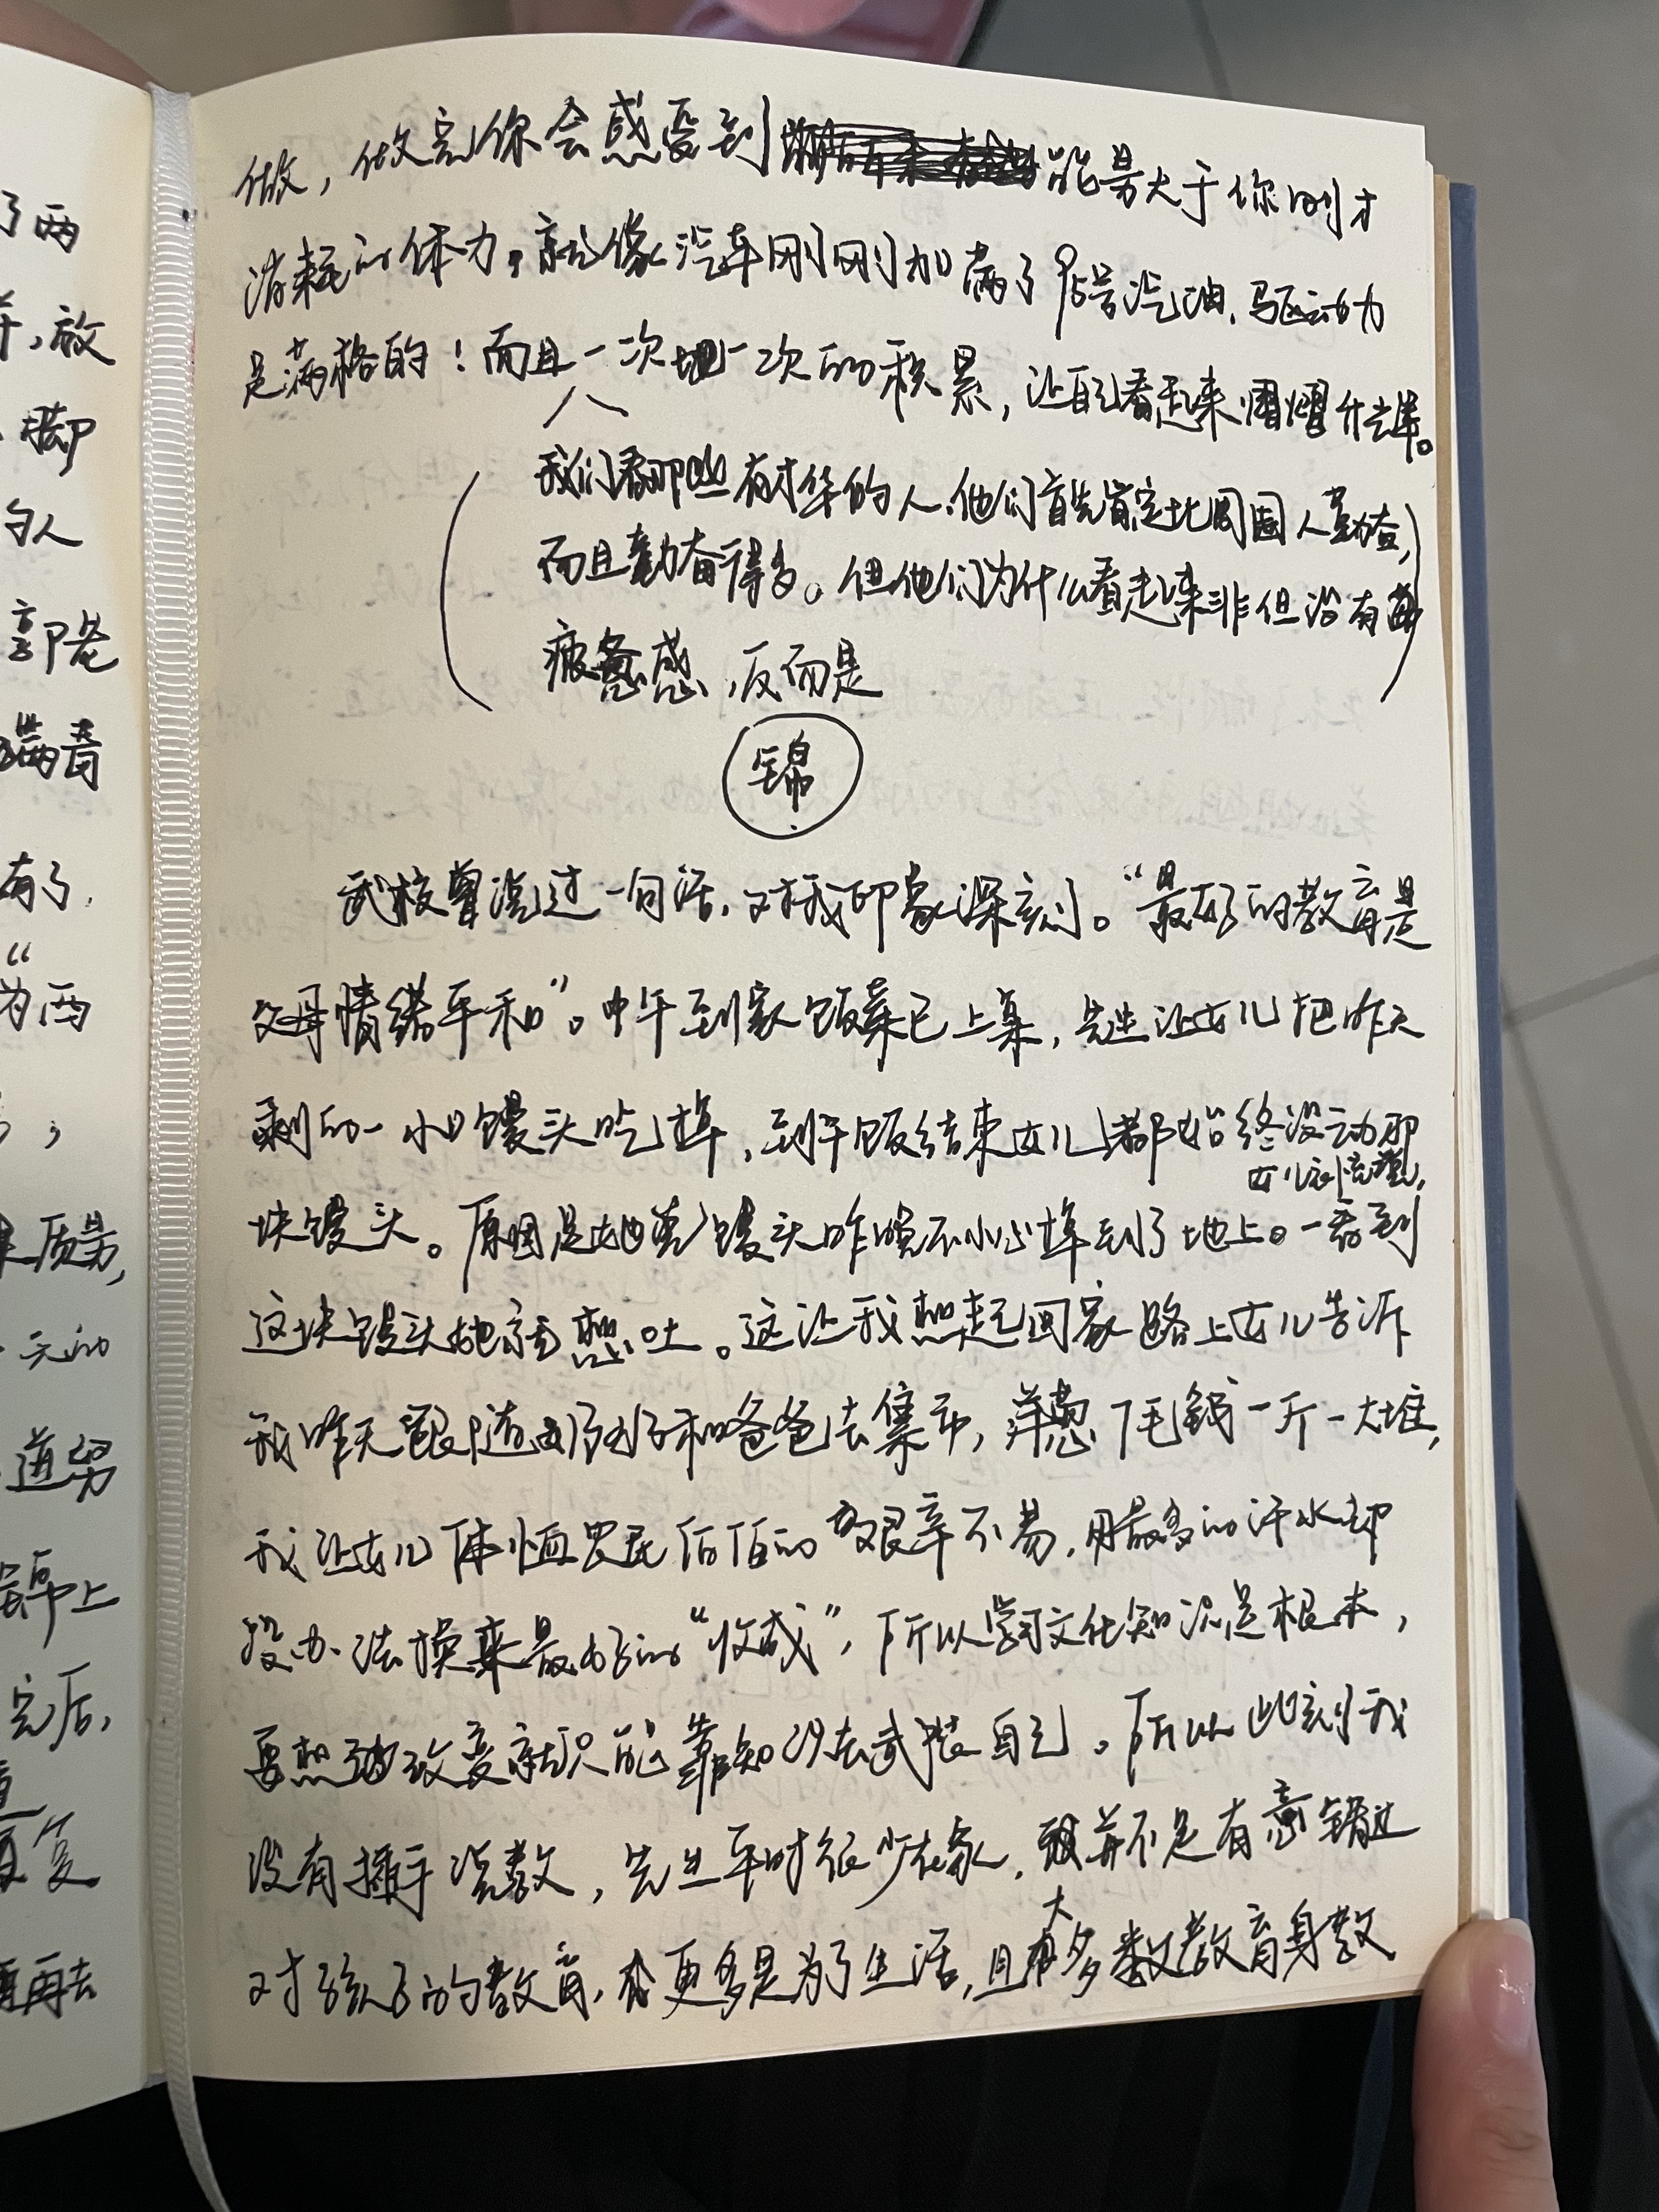 了两
并,放
脚
的人
郭老
满着
有了,
“
为两
质量,
天的
道努
上
完后,
复
再去
做,做完你会感受到能量大于你刚才
消耗的体力。就像汽车刚刚加满了95号汽油,驱动力
是满格的!而且一次一次的积累,让自己看起来熠熠升辉。
(我们看那些有才华的人,他们首先肯定比周围人勤奋,
而且勤奋得多。但他们为什么看起来非但没有
疲惫感,反而是)
锦
武校曾说过一句话,对我印象深刻。“最好的教育是
父母情绪平和”。中午到家饭菜已上桌,先生让女儿把昨天
剩的一小口馒头吃掉,到午饭结束女儿都始终没动那
块馒头。原因是她馒头昨晚不小心掉到了地上。女儿补充道,一看到
这块馒头她就想吐。这让我想起回家路上女儿告诉
我昨天跟随奶奶和爸爸去集市,洋葱1毛钱一斤一大堆,
我让女儿体恤农民伯伯的艰辛不易,用最多的汗水却
没办法换来最好的“收成”,所以学习文化知识是根本,
要想改变就只能靠知识去武装自己。所以此刻我
没有插手说教,先生平时很少在家,并不是有意错过
对孩子的教育,更多是为了生活,且大多数教育身教